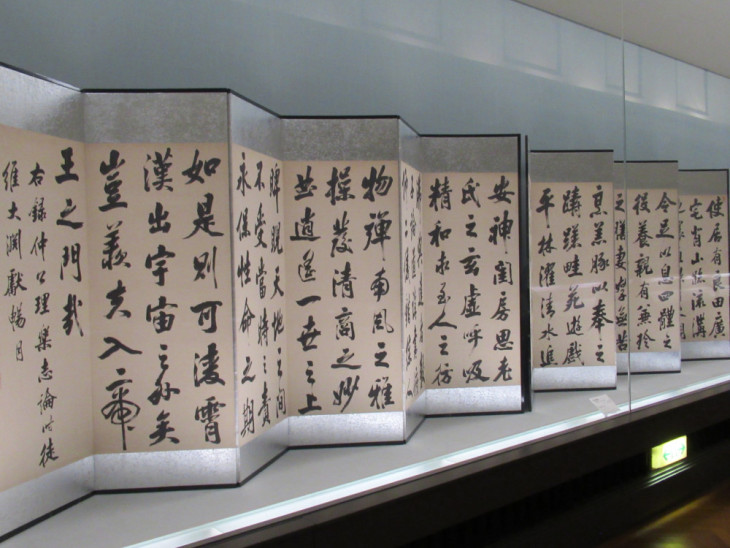 使居有良田廣
宅背山臨流溝
令足以息四體之
役養親有兼珍
之膳妻孥無苦
烹羔豚以奉之
躊躇畦苑遊戲
平林濯清水追
安神閨房思老
氏之玄虛呼吸
精和求至人之彷
物彈南風之雅
操發清商之妙
曲逍遙一世之上
睥睨天地之間
不受當時之責
永保性命之期
如是則可凌霄
漢出宇宙之外矣
豈羨夫入帝
王之門哉
右録仲公理樂志論時徒
維大淵獻暢月